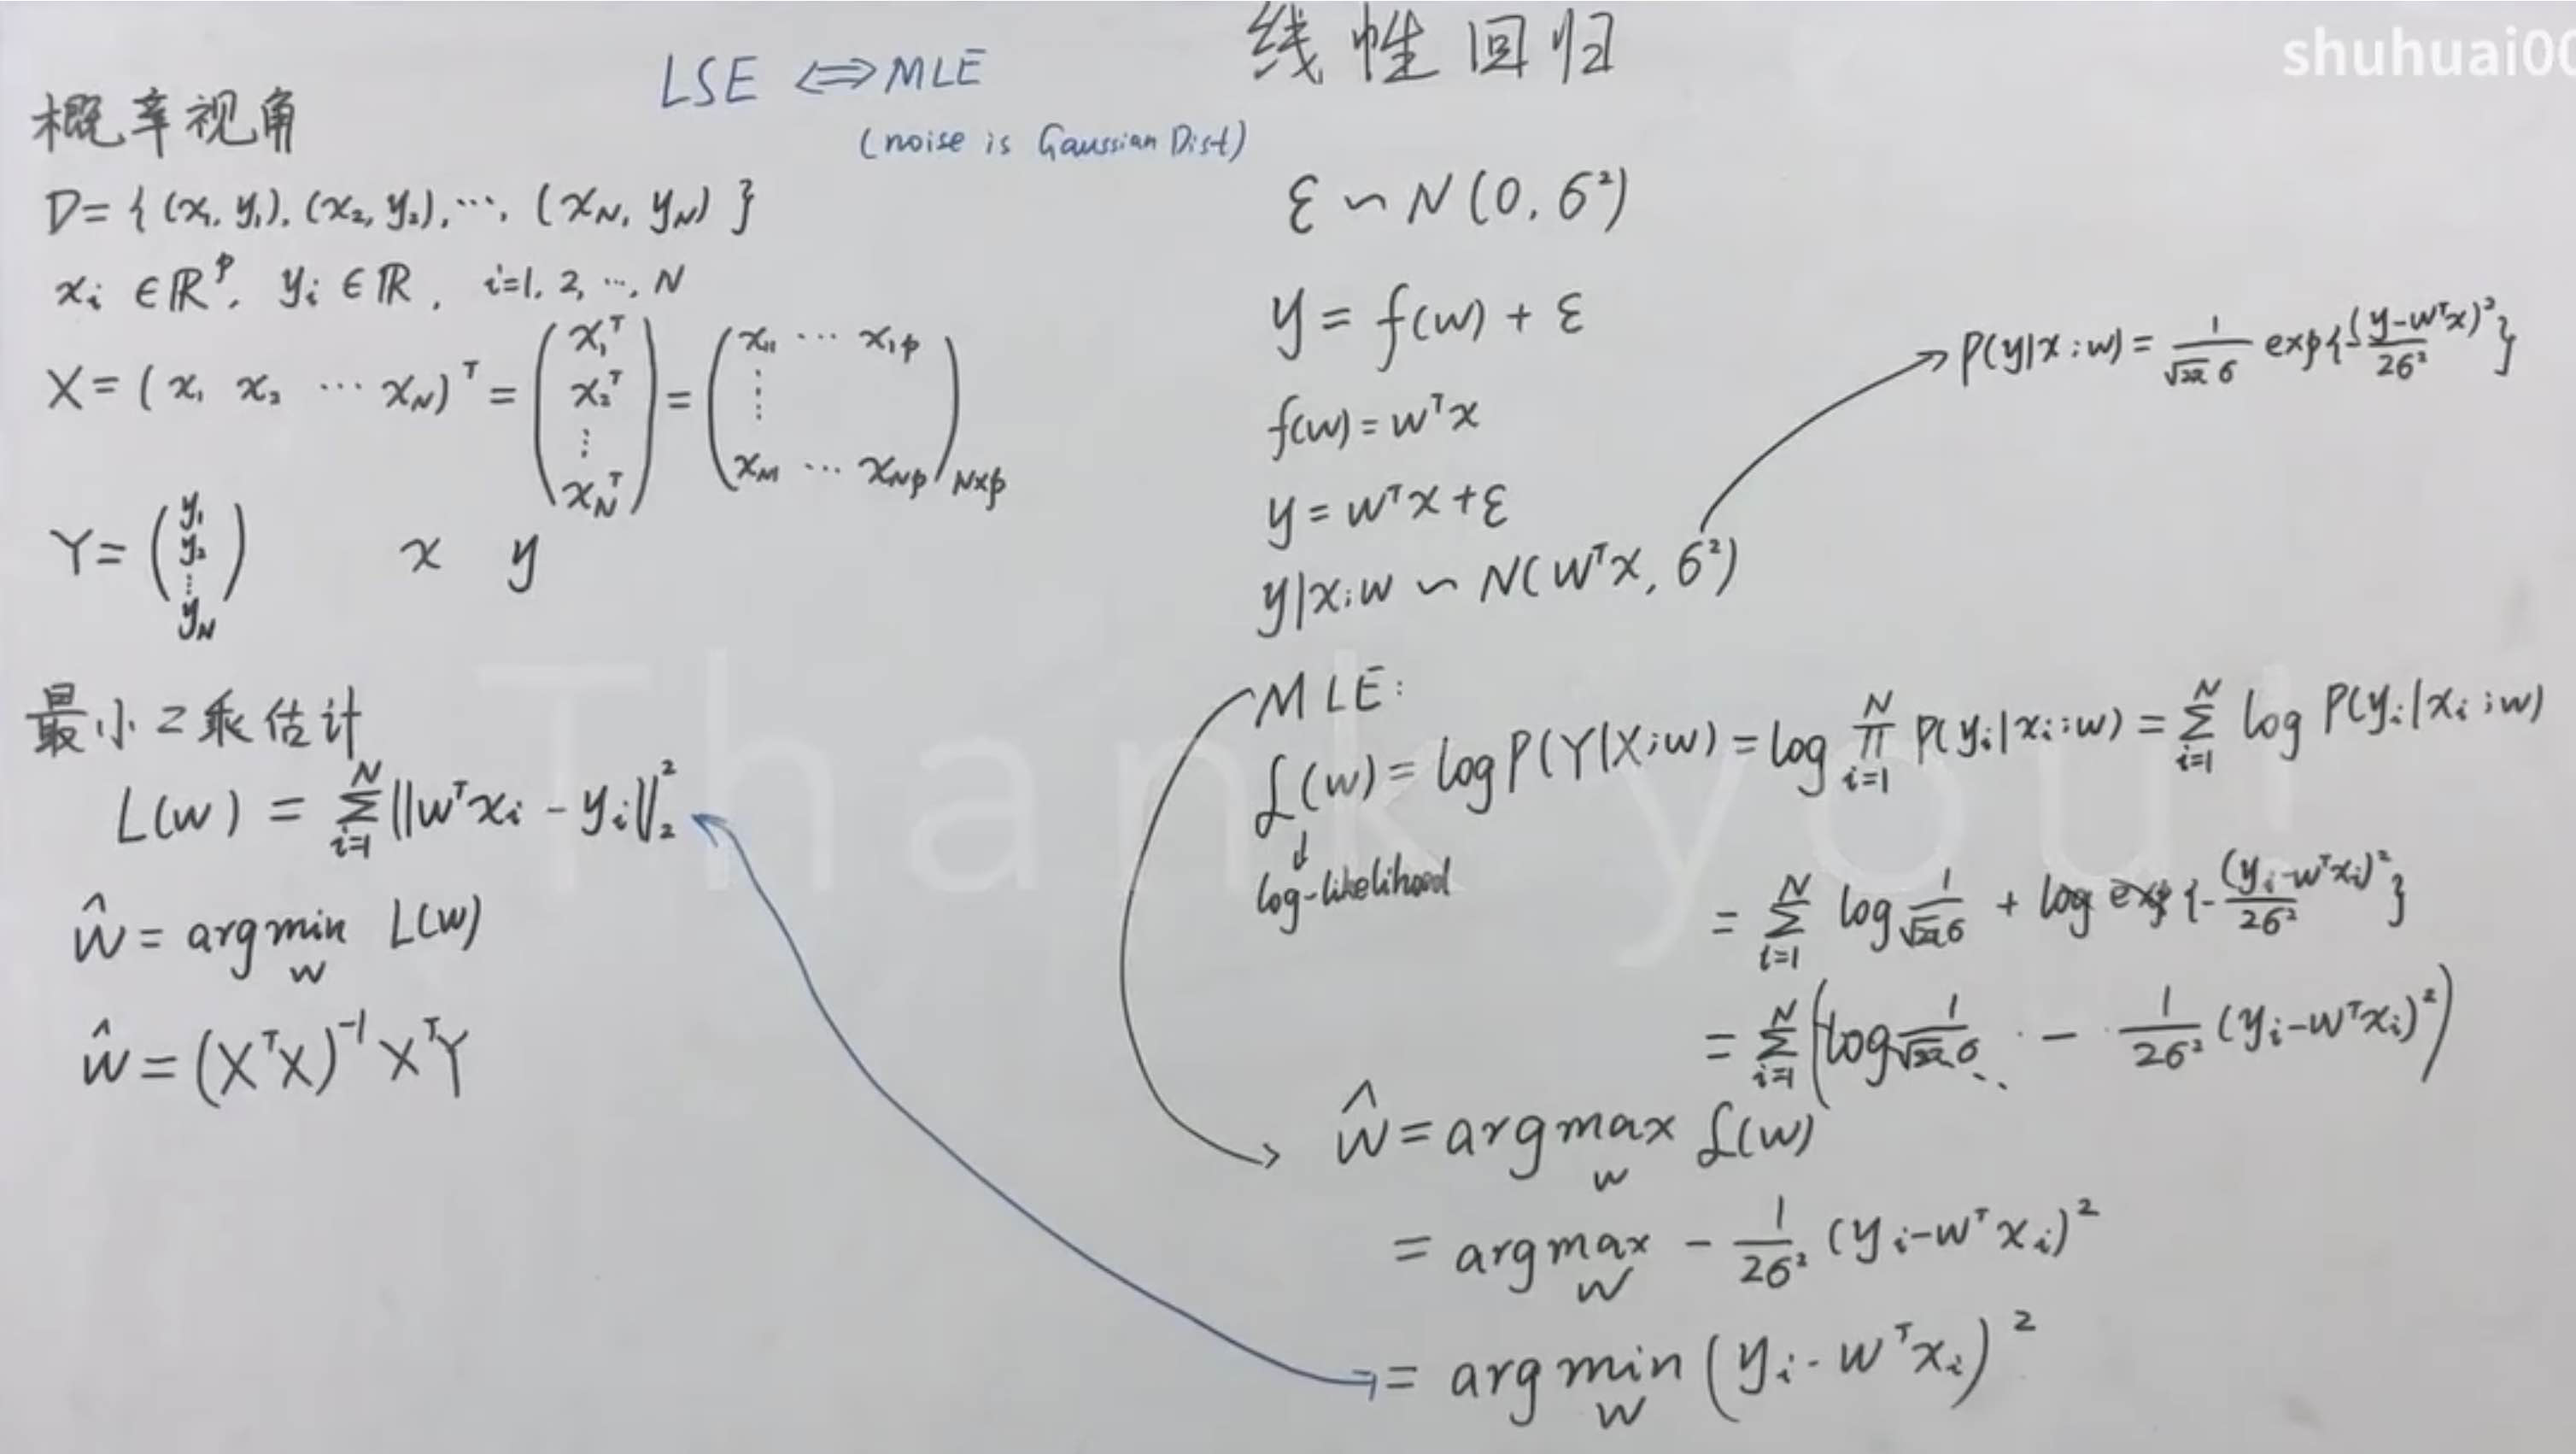 线性回归
shuhuai00
LSE ⟺ MLE
(noise is Gaussian Dist)
概率视角
D = { (x₁, y₁), (x₂, y₂), ⋯, (x_N, y_N) }
x_i ∈ ℝ^p, y_i ∈ ℝ, i=1, 2, ⋯, N
X = ( x₁ x₂ ⋯ x_N )^T = ( x₁^T x₂^T ⋮ x_N^T ) = ( x₁₁ ⋯ x₁p ⋮ x_N1 ⋯ x_Np )_N×p
Y = ( y₁ y₂ ⋮ y_N )
x y
最小乙乘估计
L(w) = Σ_{i=1}^N ||w^T x_i - y_i||₂²
ŵ = argmin_w L(w)
ŵ = (X^T X)^{-1} X^T Y
ε ~ N(0, σ²)
y = f(w) + ε
f(w) = w^T x
y = w^T x + ε
y|x;w ~ N(w^T x, σ²)
P(y|x;w) = 1/(√2π σ) exp{-(y-w^T x)²/2σ²}
MLE:
ℒ(w) = log P(Y|X;w) = log ∏_{i=1}^N P(y_i|x_i;w) = Σ_{i=1}^N log P(y_i|x_i;w)
log-likelihood
= Σ_{i=1}^N log 1/(√2π σ) + log exp{-(y_i-w^T x_i)²/2σ²}
= Σ_{i=1}^N ( log 1/(√2π σ) - 1/2σ² (y_i-w^T x_i)² )
ŵ = argmax_w ℒ(w)
= argmax_w - 1/2σ² (y_i-w^T x_i)²
= argmin_w (y_i - w^T x_i)²
Thank you!